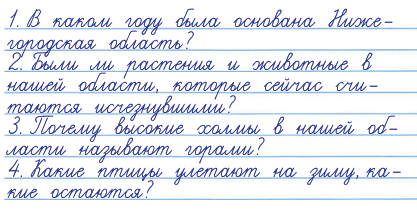 1. В каком году была основана Ниже-
городская область?
2. Были ли растения и животные в
нашей области, которые сейчас счи-
таются исчезнувшими?
3. Почему высокие холмы в нашей об-
ласти называют горами?
4. Какие птицы улетают на зиму, ка-
кие остаются?